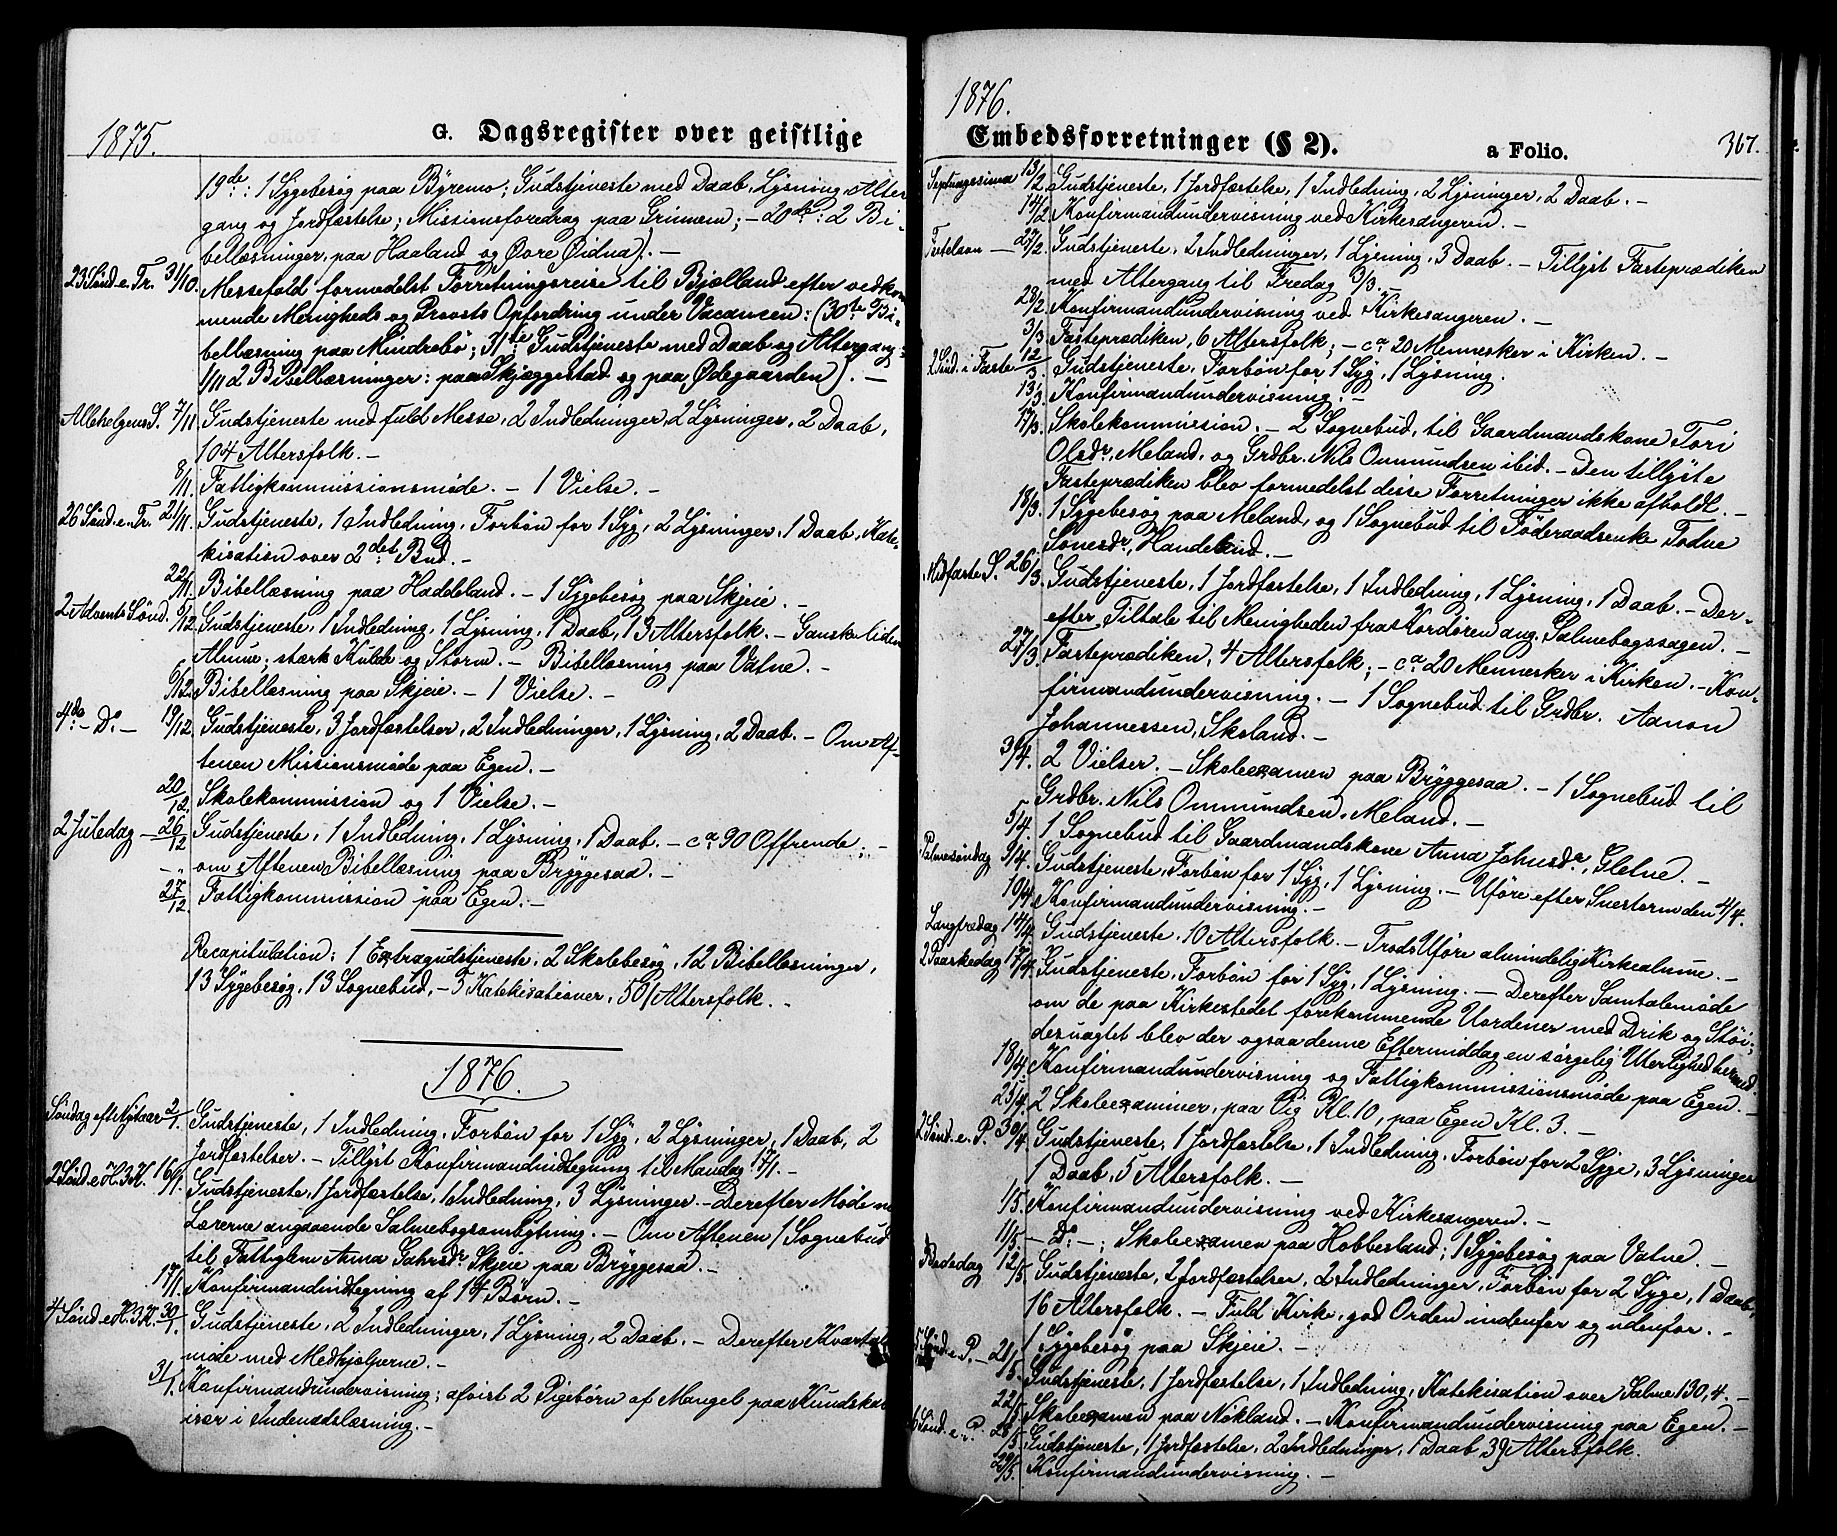 1875.
G. Dagsregister over geistlige
19de: 1 Sygebesøg paa Byremo; Gudstjeneste med Daab, Lysning, Alter-
gang og Jordfæstelse; Missionsforedrag paa Grinnem; - 20de: 2 Bi-
bellæsninger, paa Haaland og Øvre Øidna). -
23 Sønd. e. Tr. 31/10. Messefald formedelst Forretningsreise til Bjelland efter vedkom-
mende Menigheds og Provsts Opfordring under Vacansen: (30te Bi-
bellæsning paa Mindrebø; 31te Gudstjeneste med Daab og Altergang;
1/11 2 Bibellæsninger: paa Skjæggestad og paa Ødegaarden). -
Allehelgens S. 7/11 Gudstjeneste med fuld Messe, 2 Indledninger, 2 Lysninger, 2 Daab,
104 Altersfolk. -
8/11. Fattigkommissionsmøde. - 1 Vielse. -
26 Sønd. e. Tr. 21/11. Gudstjeneste, 1 Indledning, Forbøn for 1 Syg, 2 Lysninger, 1 Daab, Kate-
kisation over 2det Bud. -
22/11. Bibellæsning paa Haddeland. - 1 Sygebesøg paa Skjeie. -
2 Advents Sønd. 5/12 Gudstjeneste, 1 Indledning, 1 Lysning, 1 Daab, 13 Altersfolk. - Ganske liden
Almue; stærk Kulde og Storm. - Bibellæsning paa Vatne. -
6/12. Bibellæsning paa Skjeie. - 1 Vielse. -
4de - Do - 19/12. Gudstjeneste, 3 Jordfæstelser, 2 Indledninger, 1 Lysning, 2 Daab. - Om Af-
tenen Missionsmøde paa Egen. -
20/12. Skolekommission og 1 Vielse. -
2 Juledag - 26/12 Gudstjeneste, 1 Indledning, 1 Lysning, 1 Daab. - ca 90 Offrende; -
- " om Aftenen Bibellæsning paa Bryggesaa. -
27/12. Fattigkommission paa Egen. -
Recapitulation: 1 Extragudstjeneste, 2 Skolebesøg, 12 Bibellæsninger,
13 Sygebesøg, 13 Sognebud, - 5 Katekisationer, 501 Altersfolk. -
1876.
Søndag eft Nytaar 2/1. Gudstjeneste, 1 Indledning, Forbøn for 1 Syg, 2 Lysninger, 1 Daab, 2
Jordfæstelser. - Tillyst Konfirmandindtegning til Mandag 17/1. -
2 Sønd. e. H. 3 K. 16/1. Gudstjeneste, 1 Jordfæstelse, 1 Indledning, 3 Lysninger. - Derefter Møde m
Lærerne angaaende Salmebogsombytning. - Om Aftenen 1 Sognebud
til Fattiglem Anna Gahrsdr Skjeie paa Bryggesaa. -
17/1. Konfirmandindtegning af 14 Børn. -
4 Sønd. e. H. 3 K. 30/1. Gudstjeneste, 2 Indledninger, 1 Lysning, 2 Daab. - Derefter Kvartal
møde med Medhjælperne. -
31/1. Konfirmandundervisning; afvist 2 Pigebørn af Mangel paa Kundska-
iser i Indenadslæsning. -
1876.
Embedsforretninger (§ 2).
a Folio.
367.
Septuagesima 13/2 Gudstjeneste, 1 Jordfæstelse, 1 Indledning, 2 Lysninger, 2 Daab. -
14/2 Konfirmandundervisning ved Kirkesangeren. -
Fastelavn - 27/2. Gudstjeneste, 2 Indledninger, 1 Lysning, 3 Daab. - Tillyst Fasteprædiken
med Altergang til Fredag 3/3. -
28/2. Konfirmandundervisning ved Kirkesangeren. -
3/3. Fasteprædiken, 6 Altersfolk; - ca 20 Mennesker i Kirken. -
2 Sønd. i Faste 12/3. Gudstjeneste, Forbøn for 1 Syg, 1 Lysning.
13/3 Konfirmandundervisning. -
17/3. Skolekommission. - 2 Sognebud, til Gaardmandskone Tori
Olsdr, Meland, og Grdbr. Nils Ommundsen ibid. - Den tillyste
Fasteprædiken blev formedelst disse Forretninger ikke afholdt. -
18/3. 1 Sygebesøg paa Meland, og 1 Sognebud til Føderaadsenke Todne
Sonesdr, Handeland. -
Midfaste S. 26/3. Gudstjeneste, 1 Jordfæstelse, 1 Indledning, 1 Lysning, 1 Daab. - Der-
efter Tiltale til Menigheden fra Kordøren ang. Salmebogssagen. -
27/3. Fasteprædiken, 4 Altersfolk; - ca 20 Mennesker i Kirken. - Kon-
firmandundervisning. - 1 Sognebud til Grdbr. Aanon
Johannessen, Skoland. -
3/4. 2 Vielser. - Skoleexamen paa Bryggesaa. - 1 Sognebud til
Grdbr. Nils Ommundsen, Meland. -
5/4. 1 Sognebud til Gaardmandskone Anna Johnsdr, Sletne. -
Palmesøndag 9/4. Gudstjeneste, Forbøn for 1 Syg, 1 Lysning. - Uføre efter Snestorm den 4/4.
10/4. Konfirmandundervisning. -
Langfredag 14/4. Gudstjeneste, 10 Altersfolk. - Trods Uføre almindelig Kirkealmue. -
2 Paaskedag 17/4. Gudstjeneste, Forbøn for 1 Syg, 1 Lysning. - Derefter Samtalemøde
om de paa Kirkestedet forekommende Uordener med Drik og Støi;
desuagtet blev der ogsaa denne Eftermiddag en sørgelig Uterlighed hermed.
18/4. Konfirmandundervisning og Fattigkommissionsmøde paa Egen. -
25/4. 2 Skoleexaminer, paa Vig Kl. 10, paa Egen Kl. 3. -
2 Sønd. e. P. 30/4. Gudstjeneste, 1 Jordfæstelse, 1 Indledning, Forbøn for 2 Syge, 3 Lysninger
1 Daab, 5 Altersfolk. -
1/5. Konfirmandundervisning ved Kirkesangeren. -
11/5 - Do -; Skoleexamen paa Hobbesland; 1 Sygebesøg paa Vatne. -
Bededag 12/5. Gudstjeneste, 2 Jordfæstelser, 2 Indledninger, Forbøn for 2 Syge, 1 Daab,
16 Altersfolk. - Fuld Kirke, god Orden indenfor og udenfor. -
1 Sygebesøg paa Skjeie. -
5 Sønd. e. P. - 21/5. Gudstjeneste, 1 Jordfæstelse, 1 Indledning, Katekisation over Salme 130, 4. -
22/5. Skoleexamen paa Nøkland. - Konfirmandundervisning paa Egen. -
6 Sønd. e. P. 28/5. Gudstjeneste, 1 Jordfæstelse, 2 Indledninger, 1 Daab, 39 Altersfolk.
29/5. Konfirmandundervisning. -